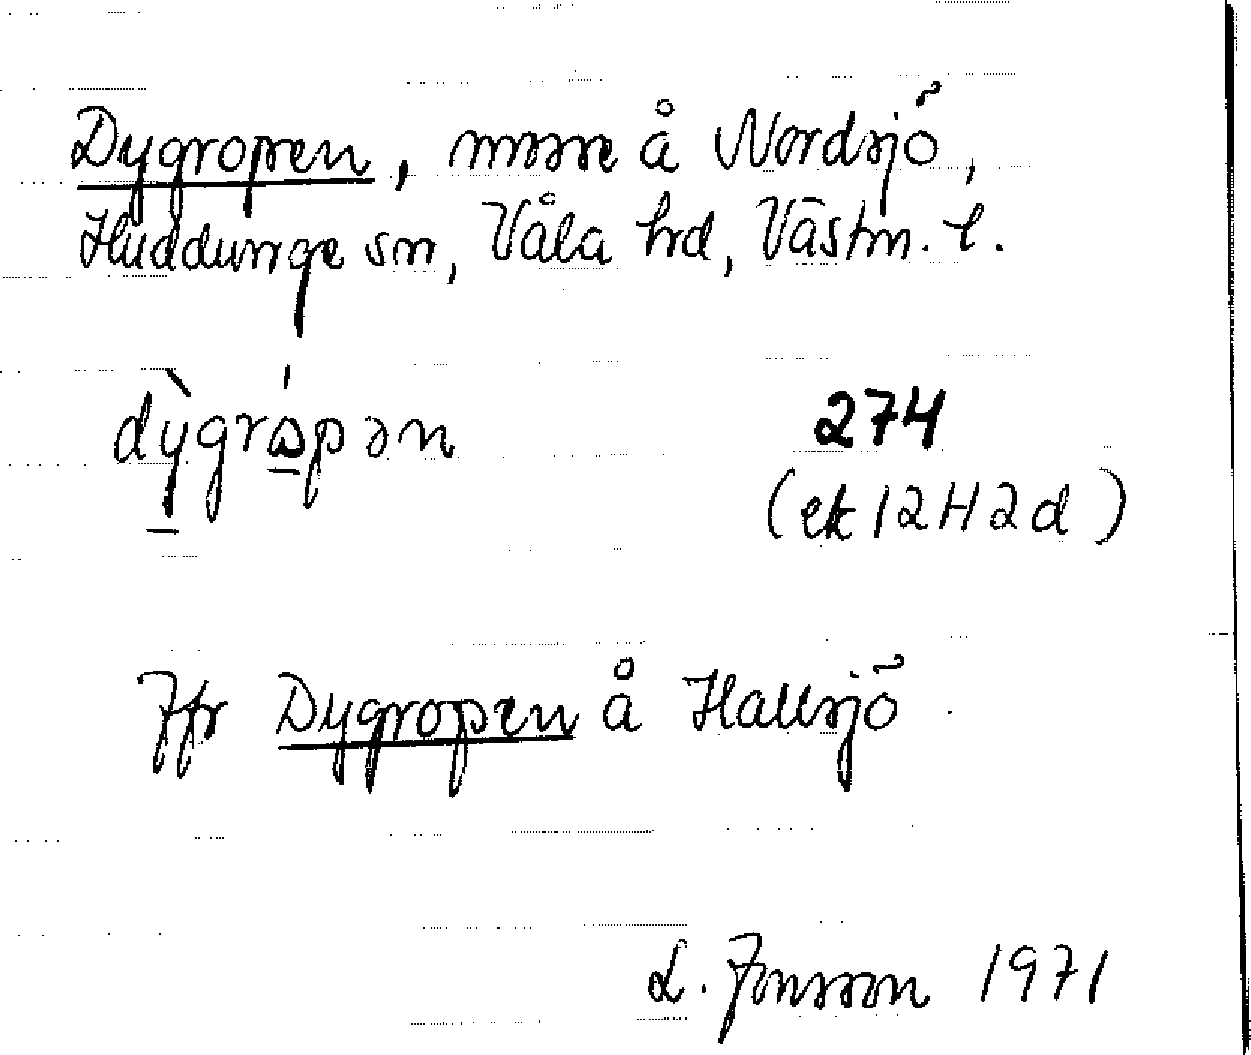 Dygropen, mosse å Nordsjö,
Huddunge sn, Våla hd, Västm. l.
dỳgrápən 274
(ek 12H2d)
Jfr Dygropen å Hallsjö
L. Jonsson 1971